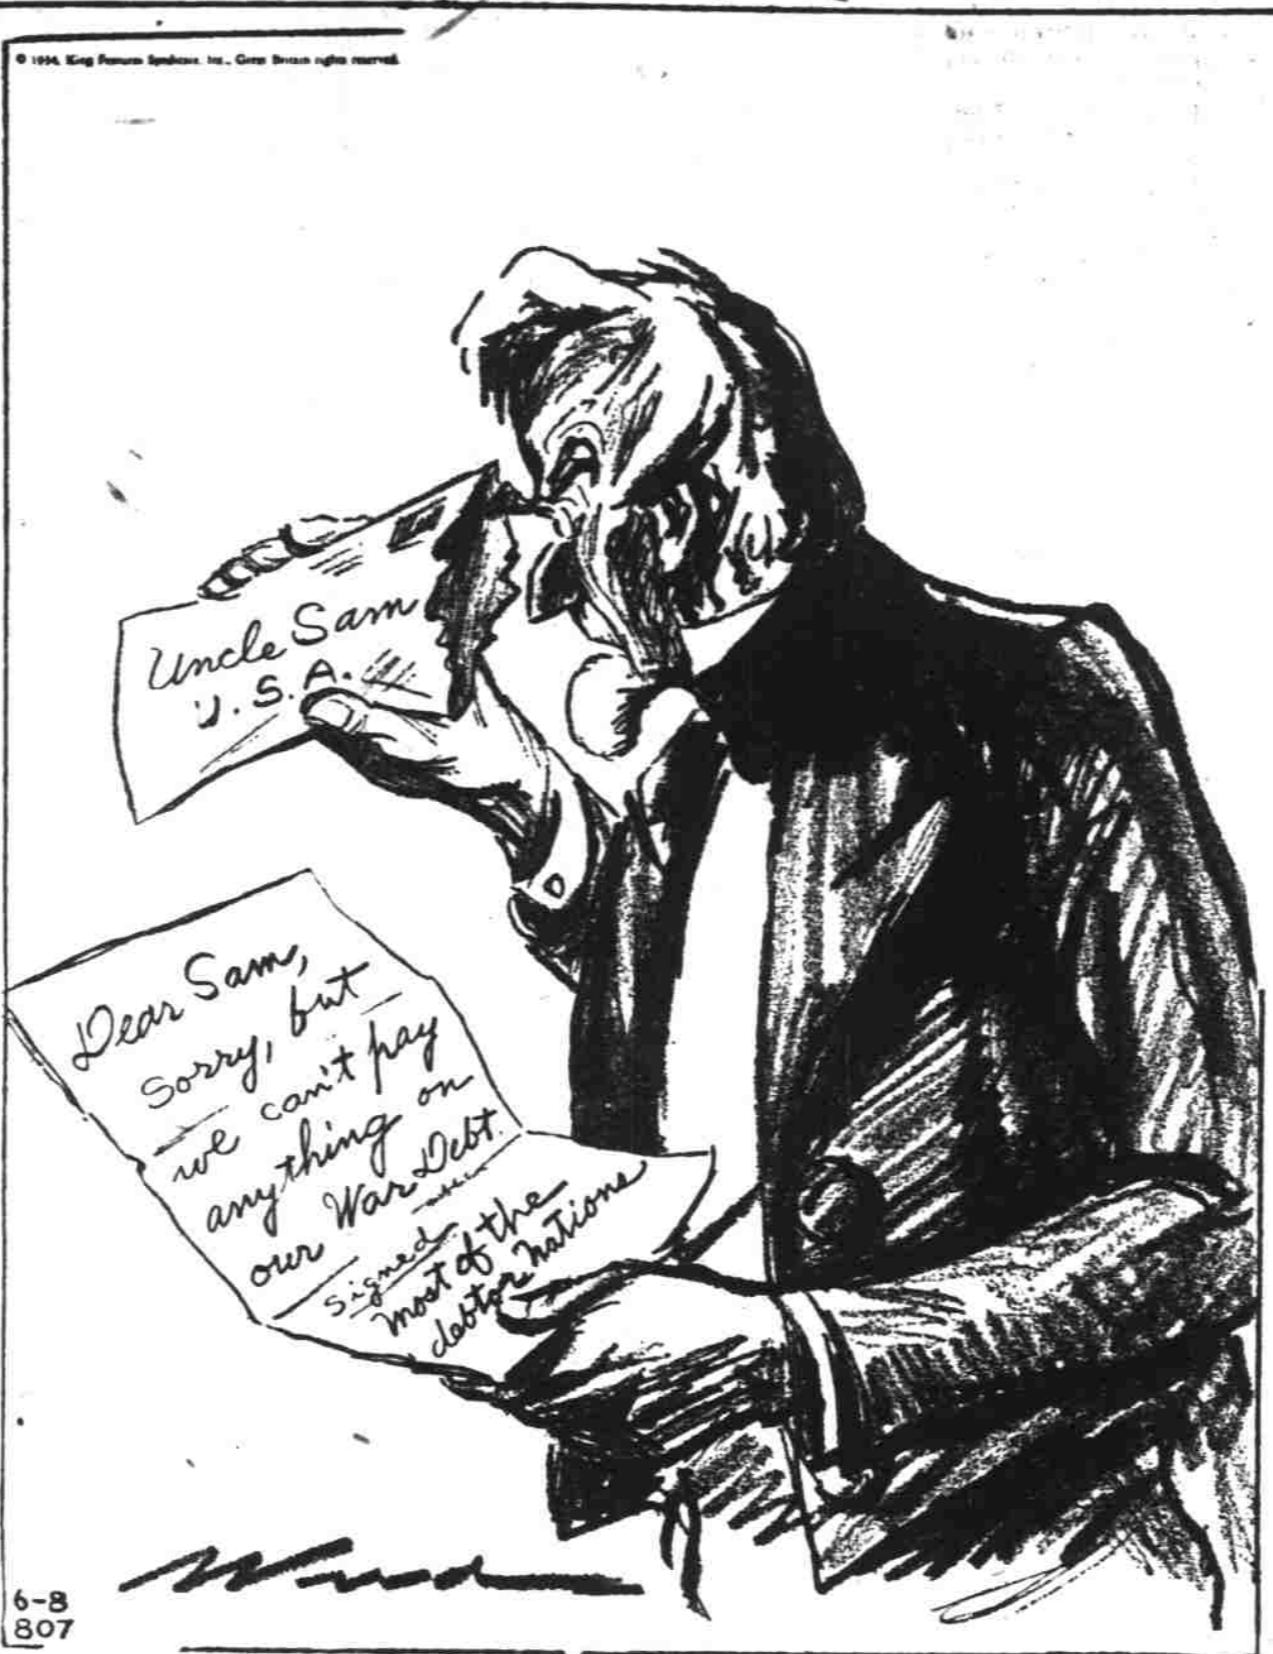 © 1934, King Features Syndicate, Inc., Great Britain rights reserved.
Uncle Sam
U.S.A.
Dear Sam,
Sorry, but
we can't pay
anything on
our War Debt.
Signed
most of the
debtor nations
6-8
807